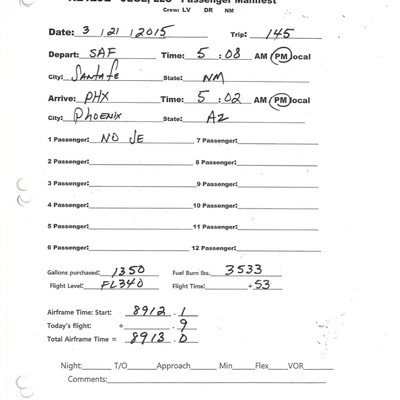 Passenger Manifest
Crew: LV DR NM
Date: 3 / 21 / 2015 Trip: 145
Depart: SAF Time: 5 : 08 AM / PM local
City: Santa Fe State: NM
Arrive: PHX Time: 5 : 02 AM / PM local
City: Phoenix State: AZ
1 Passenger: NO JE 7 Passenger:
2 Passenger: 8 Passenger:
3 Passenger: 9 Passenger:
4 Passenger: 10 Passenger:
5 Passenger: 11 Passenger:
6 Passenger: 12 Passenger:
Gallons purchased: 1350 Fuel Burn lbs. 3533
Flight Level: FL340 Flight Time: +53
Airframe Time: Start: 8912 . 1
Today's flight: + . 9
Total Airframe Time = 8913 . 0
Night: T/O Approach Min Flex VOR
Comments: